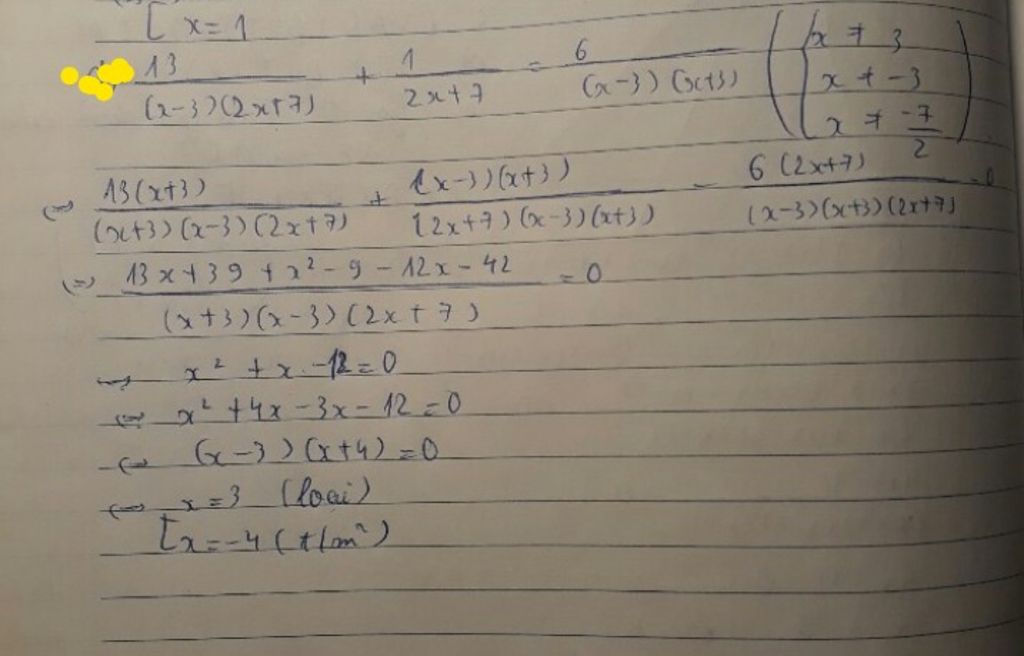 [ x = 1
13/((x-3)(2x+7)) + 1/(2x+7) = 6/((x-3)(x+3)) ( { x ≠ 3
x ≠ -3
x ≠ -7/2 )
(=) 13(x+3)/((x+3)(x-3)(2x+7)) + (x-3)(x+3)/((2x+7)(x-3)(x+3)) - 6(2x+7)/((x-3)(x+3)(2x+7)) = 0
(=) (13x + 39 + x² - 9 - 12x - 42)/((x+3)(x-3)(2x+7)) = 0
=> x² + x - 12 = 0
<=> x² + 4x - 3x - 12 = 0
<=> (x-3)(x+4) = 0
<=> x = 3 (loại)
[ x = -4 (t/m²)